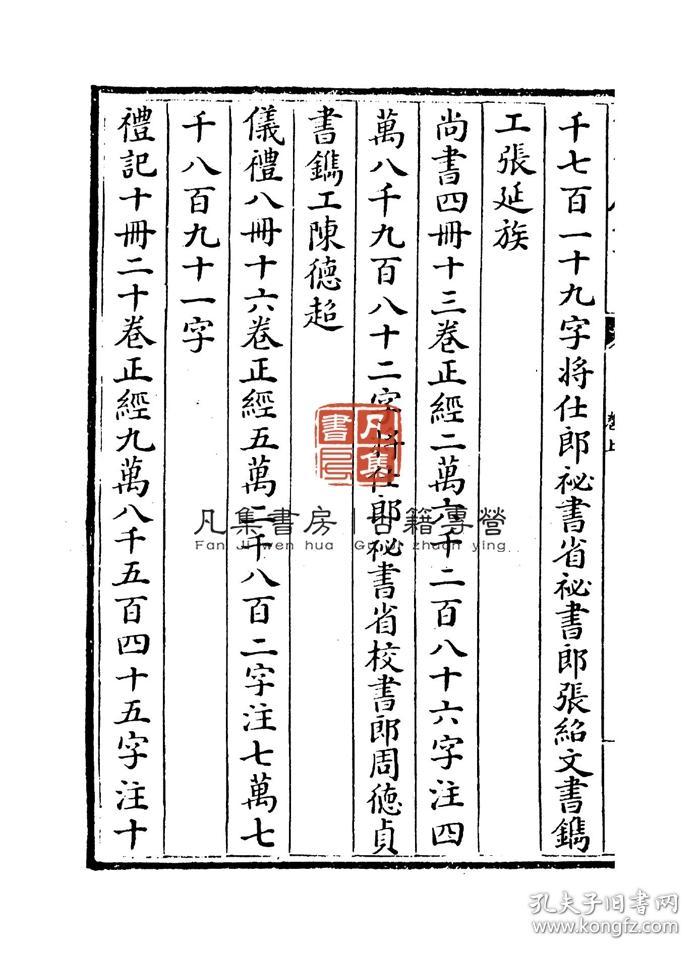 千七百一十九字将仕郎祕書省祕書郎張紹文書鐫
工張延族
尚書四冊十三卷正經二萬六千二百八十六字注四
萬八千九百八十二字將仕郎祕書省校書郎周德貞
書鐫工陳德超
儀禮八冊十六卷正經五萬二千八百二字注七萬七
千八百九十一字
禮記十冊二十卷正經九萬八千五百四十五字注十
卷上
凡集書房
凡集書房 古籍專營
Fan Ji wen hua Gu ji zhuan ying
孔夫子旧书网
www.kongfz.com